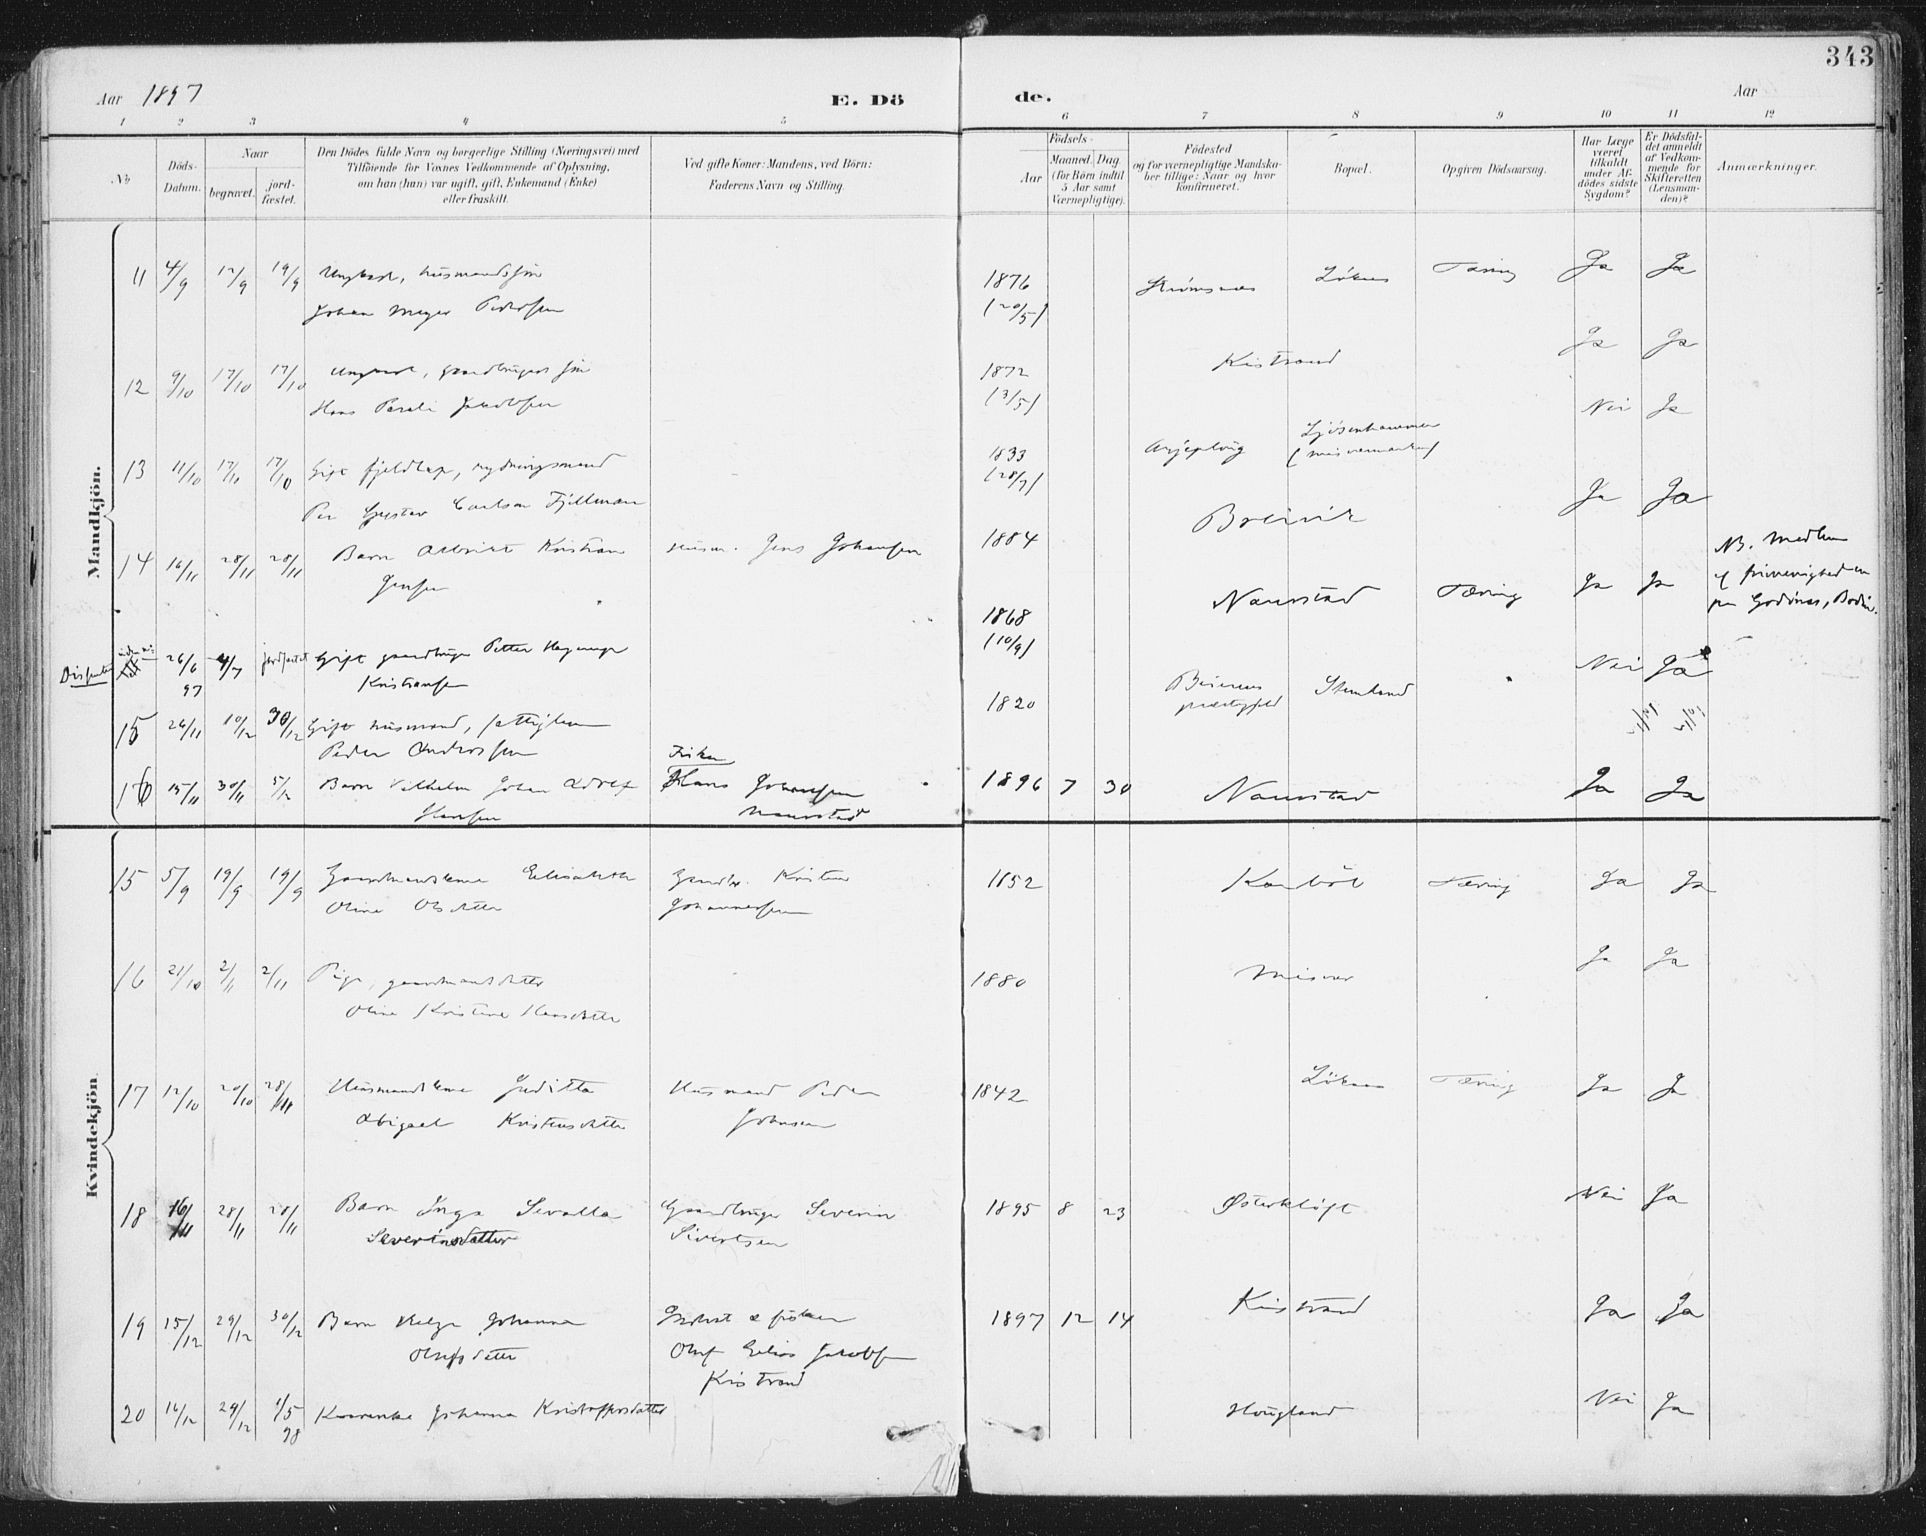 343
Aar 1897
E. Dö
de.
Aar
1 2 3 4 5 6 7 8 9 10 11 12
No
Döds-
Datum.
Naar
begravet.
jord-
fæstet.
Den Dödes fulde Navn og borgerlige Stilling (Næringsvei) med
Tilföiende for Voxnes Vedkommende af Oplysning,
om han (hun) var ugift, gift, Enkemand (Enke)
eller fraskilt.
Ved gifte Koner: Mandens, ved Börn:
Faderens Navn og Stilling.
Födsels-
Aar
Maaned. Dag.
(for Börn indtil
5 Aar samt
Værnepligtige).
Födested
og for værnepligtige Mandska-
ber tillige: Naar og hvor
konfirmeret.
Bopæl.
Opgiven Dödsaarsag.
Har Læge
været
tilkaldt
under Af-
dödes sidste
Sygdom?
Er Dödsfal-
det anmeldt
af Vedkom-
mende for
Skifteretten
(Lensman-
den)?
Anmærkninger.
Mandkjön.
11 4/9 12/9 19/9 Ungkarl, husmandssøn
Johan Meyer Pedersen
1876
(20/5)
Løknes Tæring Ja Ja
12 9/10 17/10 17/10 Ungkarl, gaardbrugers søn
Hans Jakobsen
1872
(3/5)
Kistrand Ja Ja
13 11/10 17/11 17/10 Gift fjeldlap, rydningsmand
Per Gustav Carlson Fjellman
1833
(28/7)
Arjeploug
Nei Ja
14 16/11 28/11 28/11 Barn Albrikt Kristian
Jensen
Husm. Jens Johansen
1884 Breivik Ja Ja
Dissenter 26/6 97 4/7 jordfæstet Gift gaardbruger Petter
Kristiansen
1868
(10/9)
Naurstad Tæring Ja Ja
NB. Medlem
af frimenighed en
paa Godönes, Bodin.
15 26/11 10/12 30/12 Gift husmand, fattiglem
Peder Andressen
1820
Beierens
præstegjeld
Nei Ja
16 15/11 30/11 5/12 Barn Vilhelm Johan Adolf
Hansen
Fisker
Hans Johansen
Naurstad
1896 7 30 Naurstad Ja Ja
Kvindekjön
15 5/9 19/9 19/9 Gaardmandskone Elisabeth
Oline Olsdatter
Gaardbr. Kristen
Johannessen
1852 Tæring Ja Ja
16 21/10 2/11 2/11 Pige, gaardmandsdatter
Oline Kristine Hansdatter
1880 Misvær Ja Ja
17 12/10 20/10 28/11 Husmandskone Juditta
Abigael Kristensdatter
Husmand Peder
Johnsen
1842 Løknes Tæring Ja Ja
18 16/11 28/11 28/11 Barn Inga Sevalla
Severinsdatter
Gaardbruger Severin
Sivertsen
1895 8 23 Østerkløft Nei Ja
19 15/12 29/12 30/12 Barn Helga Johanna
Olufsdatter
Inderst & fisker
Oluf Elias Jakobsen
Kistrand
1897 12 14 Kistrand Ja Ja
20 16/12 29/12 1/5 98 Johanna Kristoffersdatter
Hougland Nei Ja